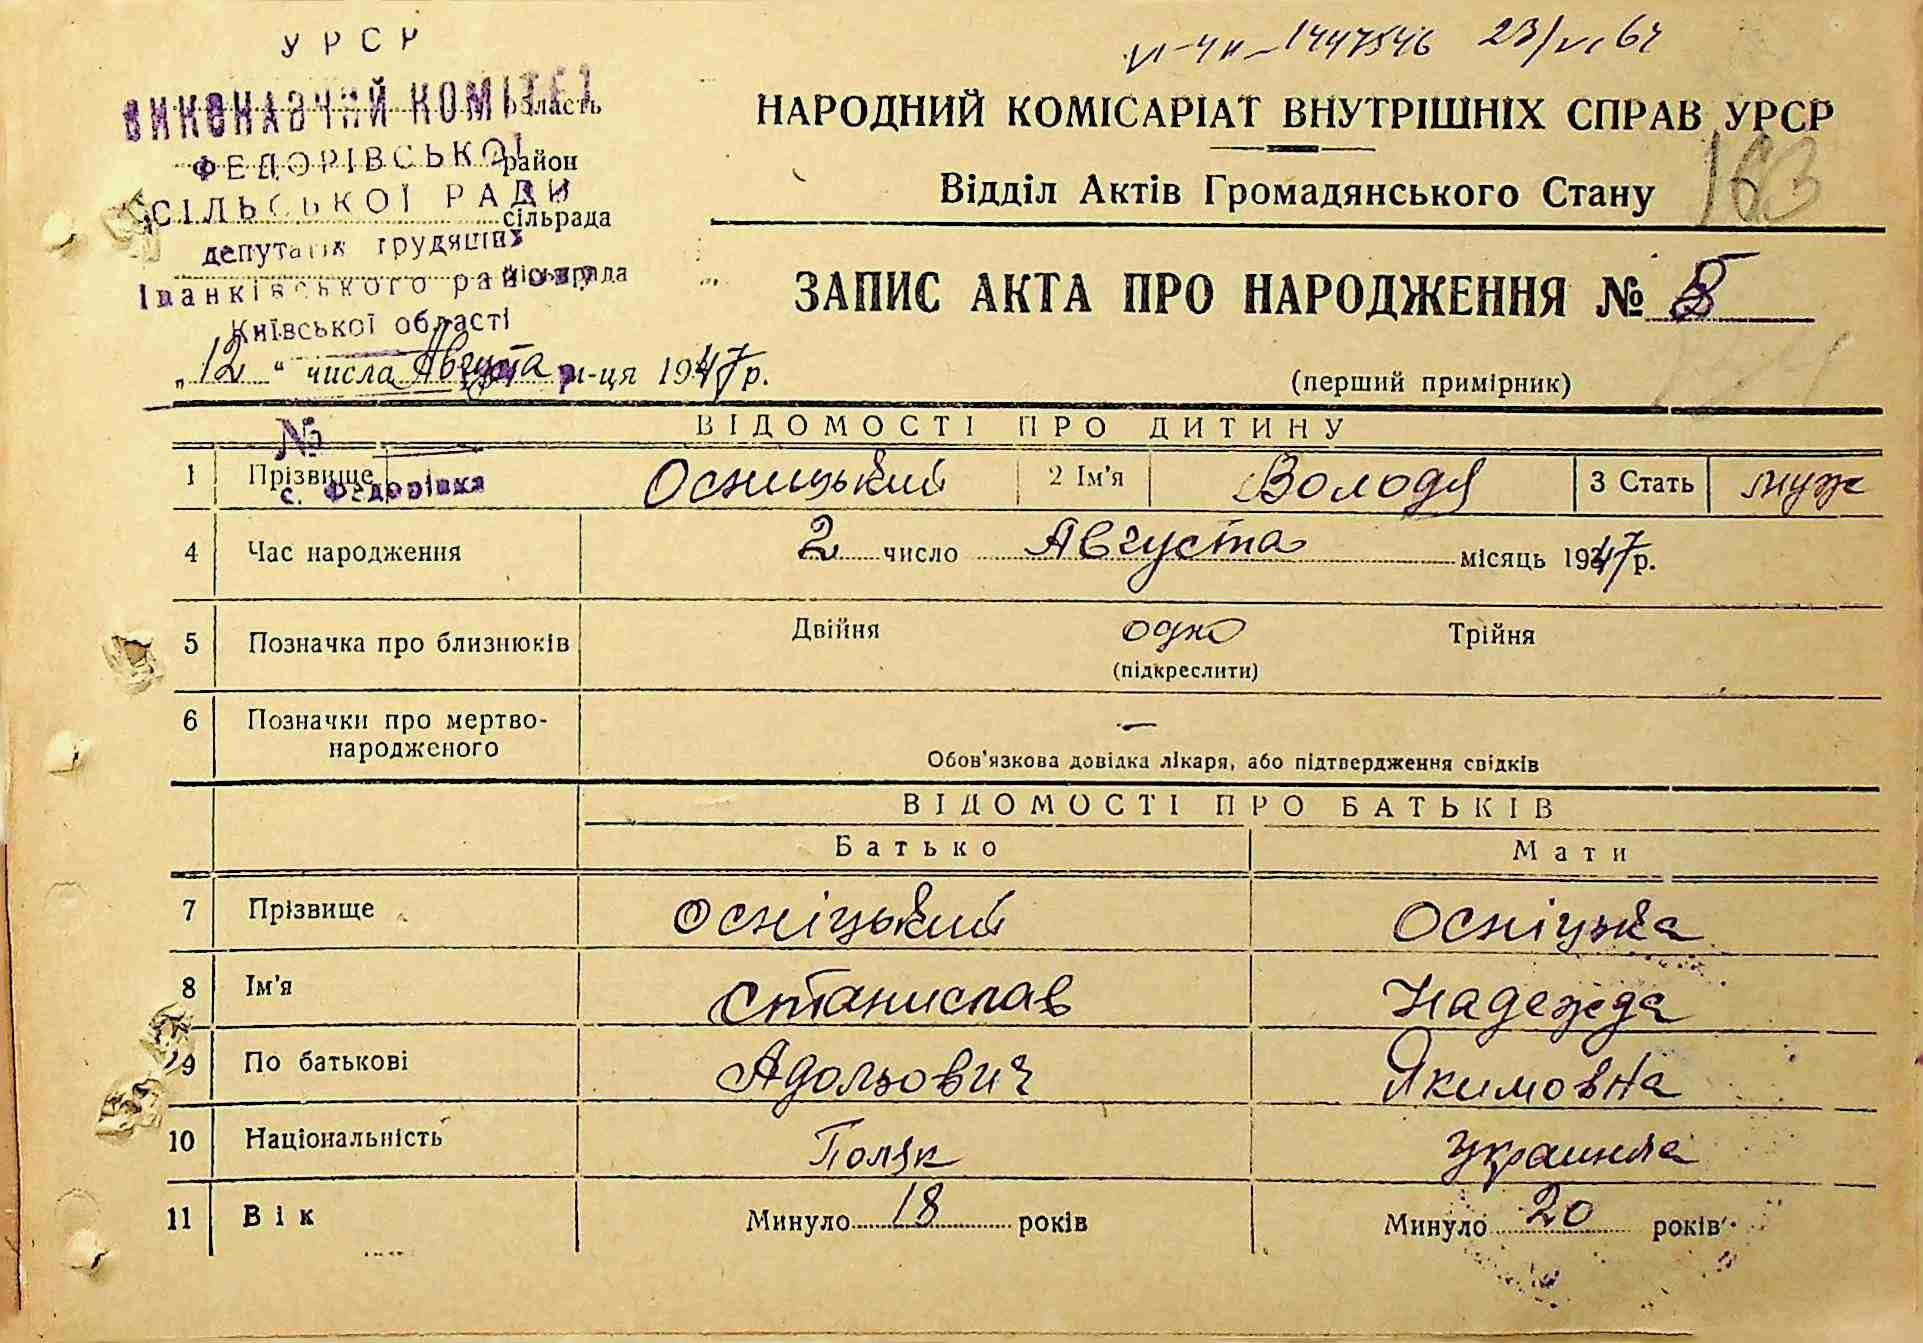 VI-ЧК-1447546 23/VI 64
УРСР
ВИКОНАВЧИЙ КОМІТЕТ область
ФЕДОРІВСЬКОЇ район
СІЛЬСЬКОЇ РАДИ сільрада
депутатів трудящих
Іванківського району міськрада
Київської області
„12“ числа Августа м-ця 1947 р.
№
с. Федорівка
НАРОДНИЙ КОМІСАРІАТ ВНУТРІШНІХ СПРАВ УРСР
Відділ Актів Громадянського Стану
163
ЗАПИС АКТА ПРО НАРОДЖЕННЯ №
(перший примірник)
ВІДОМОСТІ ПРО ДИТИНУ
1 Прізвище Осницький 2 Ім'я Володя 3 Стать муж
4 Час народження 2 число Августа місяць 1947 р.
5 Позначка про близнюків Двійня одно Трійня
(підкреслити)
6 Позначки про мертво-
народженого —
Обов'язкова довідка лікаря, або підтвердження свідків
ВІДОМОСТІ ПРО БАТЬКІВ
Батько Мати
7 Прізвище Осніцький Осніцька
8 Ім'я Станислав Надежда
9 По батькові Адольович Якимовна
10 Національність Поляк украинка
11 Вік Минуло 18 років Минуло 20 років